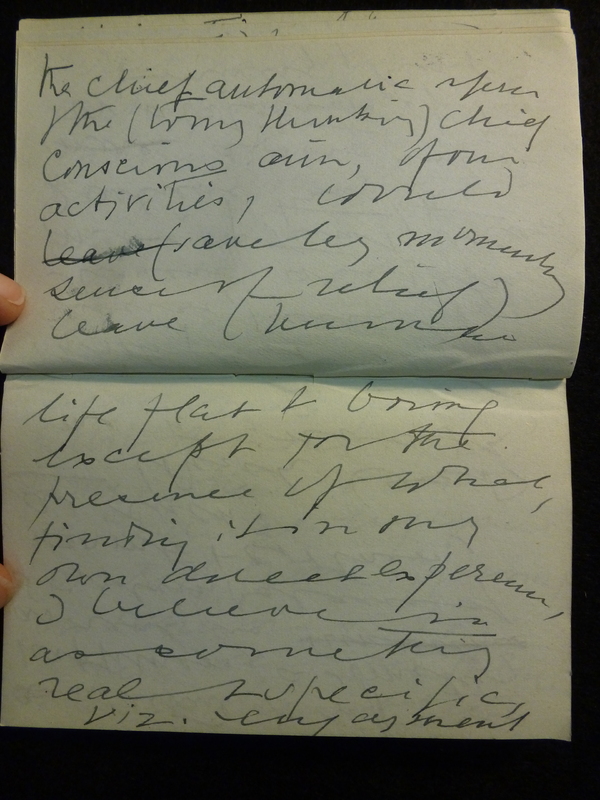 the chief automatic
the (to my thinking) chief
conscious aim, of our
activities, would
leave (save by momentary
sense of relief)
leave (human
life flat & boring
except for the
presence of what,
finding it in my
own direct experience,
I believe in
as something
real & specific,
viz. enjoyment